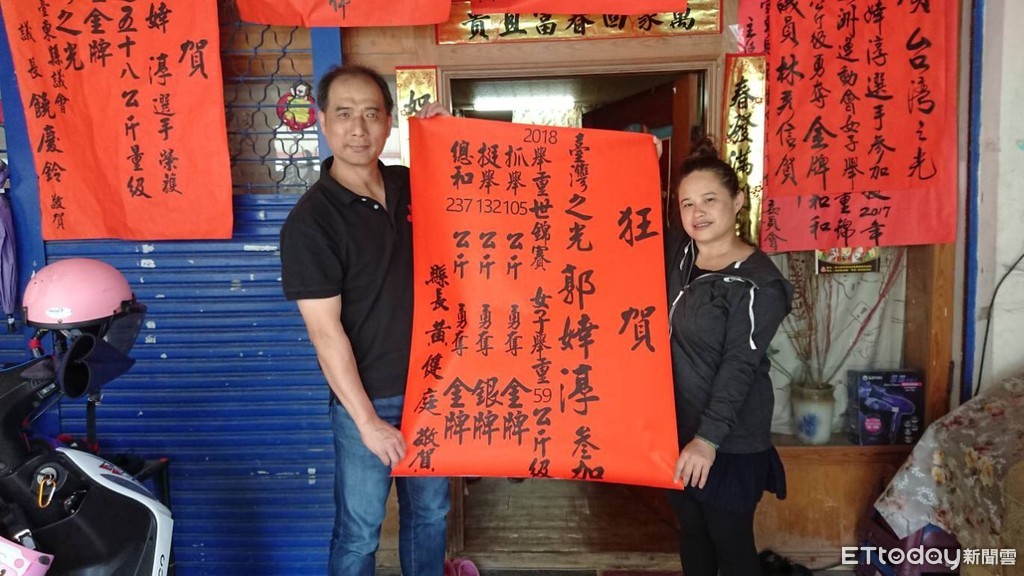 狂賀
臺灣之光郭婞淳參加
2018舉重世錦賽 女子舉重59公斤級
抓舉105公斤 勇奪 金牌
挺舉132公斤 勇奪 銀牌
總和237公斤 勇奪 金牌
縣長 黃健庭 敬賀
賀
婞淳選手榮獲
五十八公斤量級
金牌
之光
臺東縣議會
議長 饒慶鈴 敬賀
萬家回春富且貴
春發滿
賀 台灣之光
婞淳選手參加2017年
洲運動會女子舉重錦
公斤級勇奪金牌和
議員林秀信賀
ETtoday新聞雲